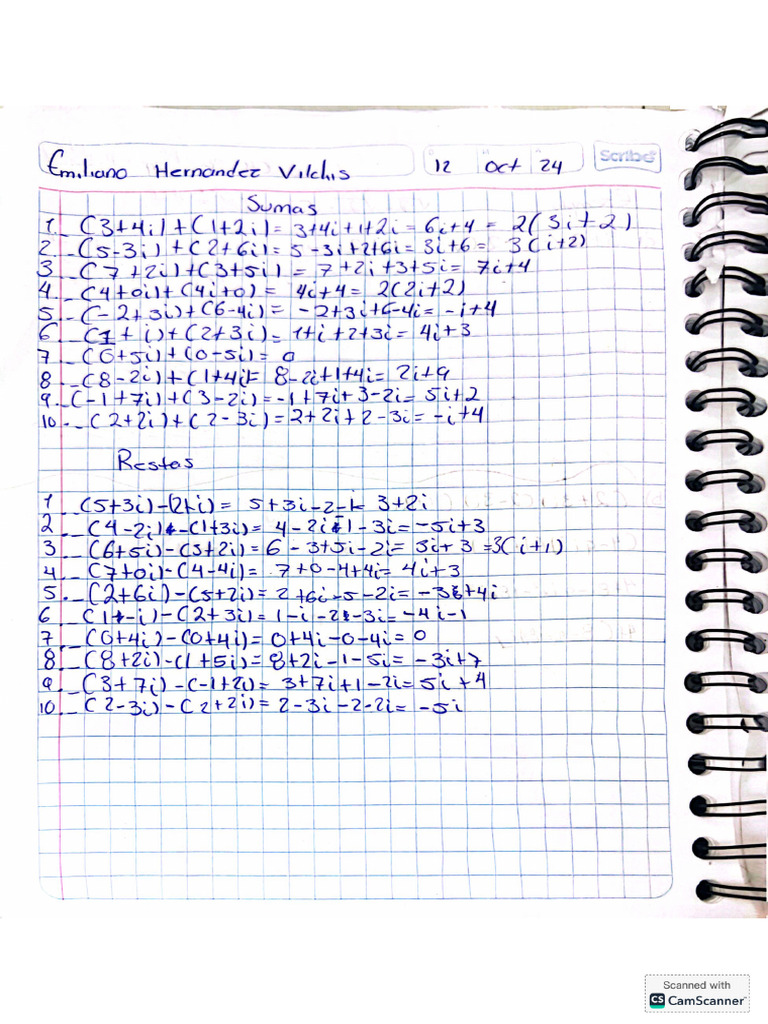 Emiliano Hernandez Vilchis 12 Oct 24 Scribe
Sumas
1._ (3+4i)+(1+2i)= 3+4i+1+2i= 6i+4 = 2(3i+2)
2._ (5-3i)+(2+6i)= 5-3i+2+6i= 3i+6= 3(i+2)
3_ (7+2i)+(3+5i) = 7+2i+3+5i= 7i+4
4._ (4+0i)+(4i+0)= 4i+4= 2(2i+2)
5._ (-2+3i)+(6-4i)= -2+3i+6-4i= -i+4
6_ (1+i)+(2+3i)= 1+i+2+3i= 4i+3
7_ (0+5i)+(0-5i)= 0
8_ (8-2i)+(1+4i)= 8-2i+1+4i= 2i+9
9._ (-1+7i)+(3-2i)=-1+7i+3-2i= 5i+2
10._ (2+2i)+(2-3i)= 2+2i+2-3i= -i+4
Restas
1 (5+3i)-(2+i)= 5+3i-2-i= 3+2i
2_ (4-2i)-(1+3i)= 4-2i-1-3i= -5i+3
3_ (6+5i)-(3+2i)= 6-3+5i-2i= 3i+3 =3(i+1)
4_ (7+0i)-(4-4i)= 7+0-4+4i= 4i+3
5._ (2+6i)-(5+2i)= 2+6i-5-2i= -3+4i
6_ (1-i)-(2+3i)= 1-i-2-3i= -4i-1
7_ (0+4i)-(0+4i)= 0+4i-0-4i= 0
8._ (8+2i)-(1+5i)= 8+2i-1-5i= -3i+7
9_ (3+7i)-(-1+2i)= 3+7i+1-2i= 5i+4
10._ (2-3i)-(2+2i)= 2-3i-2-2i= -5i
Scanned with
CS CamScanner